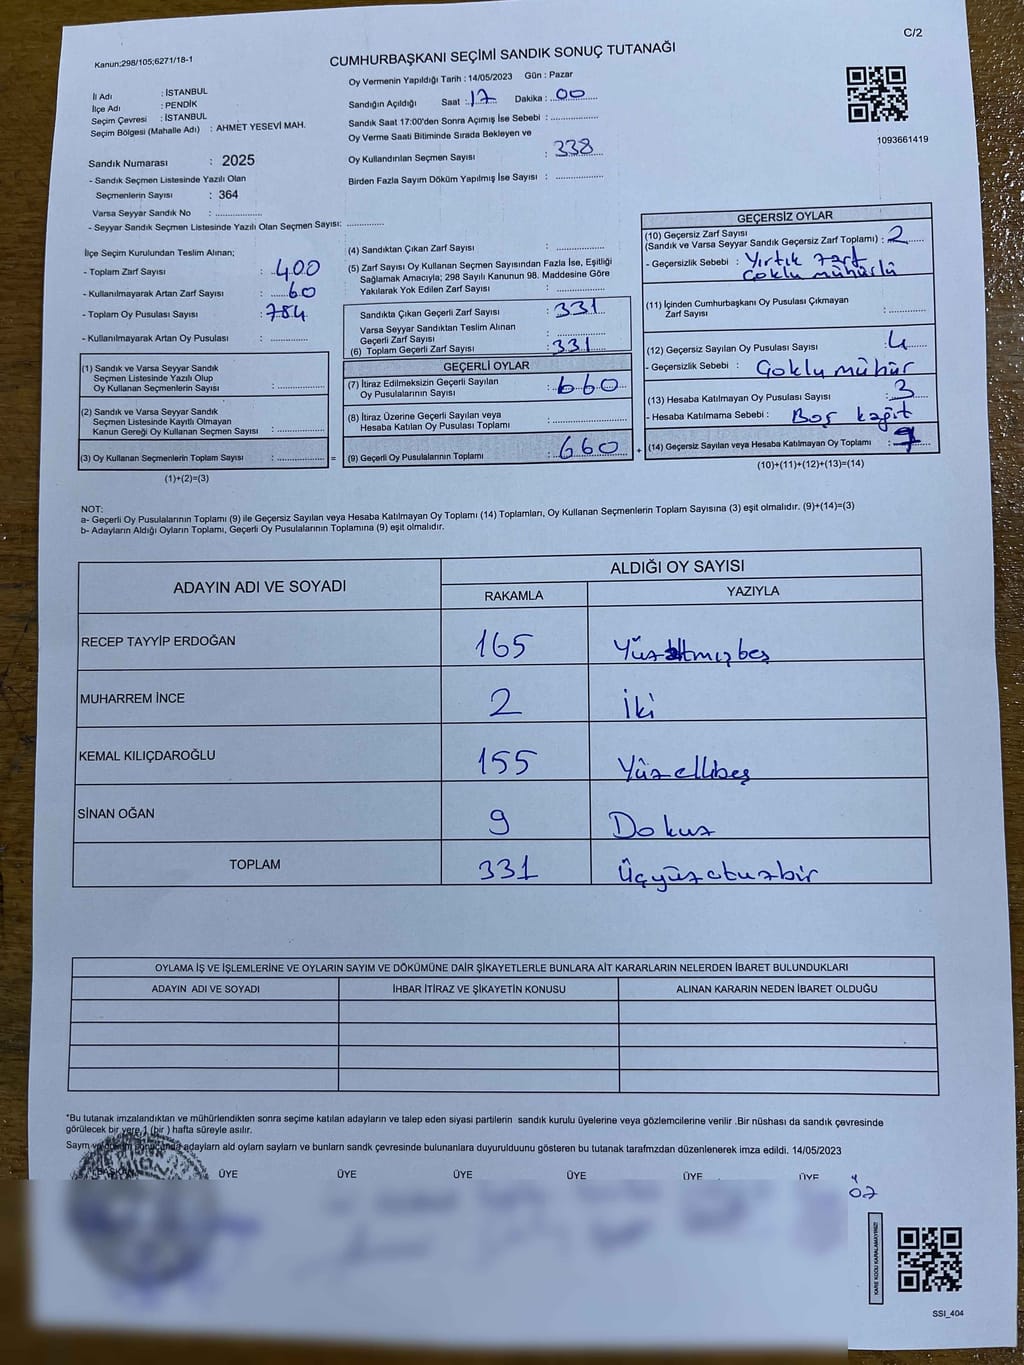 C/2
Kanun:298/105;6271/18-1
CUMHURBAŞKANI SEÇİMİ SANDIK SONUÇ TUTANAĞI
İl Adı : İSTANBUL
İlçe Adı : PENDİK
Seçim Çevresi : İSTANBUL
Seçim Bölgesi (Mahalle Adı) : AHMET YESEVİ MAH.
Sandık Numarası : 2025
- Sandık Seçmen Listesinde Yazılı Olan
Seçmenlerin Sayısı : 364
Varsa Seyyar Sandık No : ................
- Seyyar Sandık Seçmen Listesinde Yazılı Olan Seçmen Sayısı: ............
Oy Vermenin Yapıldığı Tarih : 14/05/2023 Gün : Pazar
Sandığın Açıldığı Saat : 17 Dakika : 00
Sandık Saat 17:00'den Sonra Açımış İse Sebebi : ................
Oy Verme Saati Bitiminde Sırada Bekleyen ve
Oy Kullandırılan Seçmen Sayısı : 338
Birden Fazla Sayım Döküm Yapılmış İse Sayısı : ................
1093661419
İlçe Seçim Kurulundan Teslim Alınan;
- Toplam Zarf Sayısı : 400
- Kullanılmayarak Artan Zarf Sayısı : 60
- Toplam Oy Pusulası Sayısı : 784
- Kullanılmayarak Artan Oy Pusulası : ............
(1) Sandık ve Varsa Seyyar Sandık
Seçmen Listesinde Yazılı Olup
Oy Kullanan Seçmenlerin Sayısı : ................
(2) Sandık ve Varsa Seyyar Sandık
Seçmen Listesinde Kayıtlı Olmayan
Kanun Gereği Oy Kullanan Seçmen Sayısı : ................
(3) Oy Kullanan Seçmenlerin Toplam Sayısı : ................ =
(1)+(2)=(3)
(4) Sandıktan Çıkan Zarf Sayısı : ................
(5) Zarf Sayısı Oy Kullanan Seçmen Sayısından Fazla İse, Eşitliği
Sağlamak Amacıyla; 298 Sayılı Kanunun 98. Maddesine Göre
Yakılarak Yok Edilen Zarf Sayısı : ................
Sandıkta Çıkan Geçerli Zarf Sayısı : 331
Varsa Seyyar Sandıktan Teslim Alınan
Geçerli Zarf Sayısı : ................
(6) Toplam Geçerli Zarf Sayısı : 331
GEÇERLİ OYLAR
(7) İtiraz Edilmeksizin Geçerli Sayılan
Oy Pusulasının Sayısı : 660
(8) İtiraz Üzerine Geçerli Sayılan veya
Hesaba Katılan Oy Pusulası Toplamı : ................
(9) Geçerli Oy Pusulalarının Toplamı : 660 +
GEÇERSİZ OYLAR
(10) Geçersiz Zarf Sayısı
(Sandık ve Varsa Seyyar Sandık Geçersiz Zarf Toplamı) : 2
- Geçersizlik Sebebi : Yırtık zarf
Çoklu mühürlü
(11) İçinden Cumhurbaşkanı Oy Pusulası Çıkmayan
Zarf Sayısı : ............
(12) Geçersiz Sayılan Oy Pusulası Sayısı : 4
- Geçersizlik Sebebi : Çoklu mühür
(13) Hesaba Katılmayan Oy Pusulası Sayısı : 3
- Hesaba Katılmama Sebebi : Boş kağıt
(14) Geçersiz Sayılan veya Hesaba Katılmayan Oy Toplamı : 9
(10)+(11)+(12)+(13)=(14)
NOT:
a- Geçerli Oy Pusulalarının Toplamı (9) ile Geçersiz Sayılan veya Hesaba Katılmayan Oy Toplamı (14) Toplamları, Oy Kullanan Seçmenlerin Toplam Sayısına (3) eşit olmalıdır. (9)+(14)=(3)
b- Adayların Aldığı Oyların Toplamı, Geçerli Oy Pusulalarının Toplamına (9) eşit olmalıdır.
ADAYIN ADI VE SOYADI
ALDIĞI OY SAYISI
RAKAMLA YAZIYLA
RECEP TAYYİP ERDOĞAN 165 Yüzaltmışbeş
MUHARREM İNCE 2 İki
KEMAL KILIÇDAROĞLU 155 Yüzellibeş
SİNAN OĞAN 9 Dokuz
TOPLAM 331 Üçyüzotuzbir
OYLAMA İŞ VE İŞLEMLERİNE VE OYLARIN SAYIM VE DÖKÜMÜNE DAİR ŞİKAYETLERLE BUNLARA AİT KARARLARIN NELERDEN İBARET BULUNDUKLARI
ADAYIN ADI VE SOYADI İHBAR İTİRAZ VE ŞİKAYETİN KONUSU ALINAN KARARIN NEDEN İBARET OLDUĞU
*Bu tutanak imzalandıktan ve mühürlendikten sonra seçime katılan adayların ve talep eden siyasi partilerin sandık kurulu üyelerine veya gözlemcilerine verilir .Bir nüshası da sandık çevresinde
görülecek bir yere 1 (bir ) hafta süreyle asılır.
Saym ve adaylarn ald oylarn saylarn ve bunlarn sandk çevresinde bulunanlara duyurulduunu gösteren bu tutanak tarafmzdan düzenlenerek imza edildi. 14/05/2023
BAŞKAN ÜYE ÜYE ÜYE ÜYE ÜYE ÜYE
KARE KODU KARALAMAYINIZ!
SSİ_404